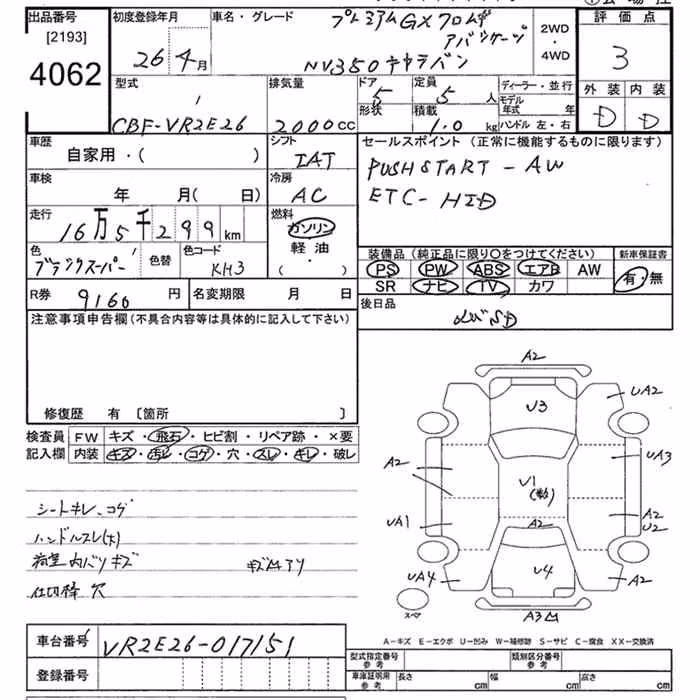 出品番号
[2193]
4062
初度登録年月
26年4月
車名・グレード
プレミアムGXクロムギア
パッケージ
NV350キャラバン
2WD
・
4WD
評価点
3
外装 内装
D D
型式
CBF-VR2E26
排気量
2000cc
ドア
5
形状
定員
5人
積載
1.0kg
ディーラー・並行
モデル年式 年
ハンドル 左・右
車歴
自家用・( )
シフト
IAT
セールスポイント(正常に機能するものに限ります)
PUSH START - AW
ETC - HID
車検
年 月(日)
冷房
AC
走行
16万5千299km
燃料
ガソリン
軽油
( ・ )
色
ブラックスーパー
色替
色コード
KH3
装備品(純正品に限り〇をつけてください)
PS PW ABS エアB AW
SR ナビ TV カワ
新車保証書
有・無
R券
9160円
名変期限 月 日
後日品
注意事項申告欄(不具合内容等は具体的に記入して下さい)
修復歴 有 〔箇所 〕
検査員
記入欄
FW キズ・飛石・ヒビ割・リペア跡・×要
内装 キズ・汚レ・コゲ・穴・スレ・キレ・破レ
シートキレ、コゲ
ハンドルスレ(大)
荷室内バリキズ
キズ凹アリ
仕切棒穴
A2
U3
UA2
A2
UA3
U1
UA1
A2
A2
U2
UA4
U4
A2
スペア
A3凹
A-キズ E-エクボ U-凹み W-補修跡 S-サビ C-腐食 XX-交換済
車台番号
VR2E26-017151
登録番号
型式指定番号
参考
類別区分番号
参考
車庫証明用
参考
長さ cm
幅 cm
高さ cm